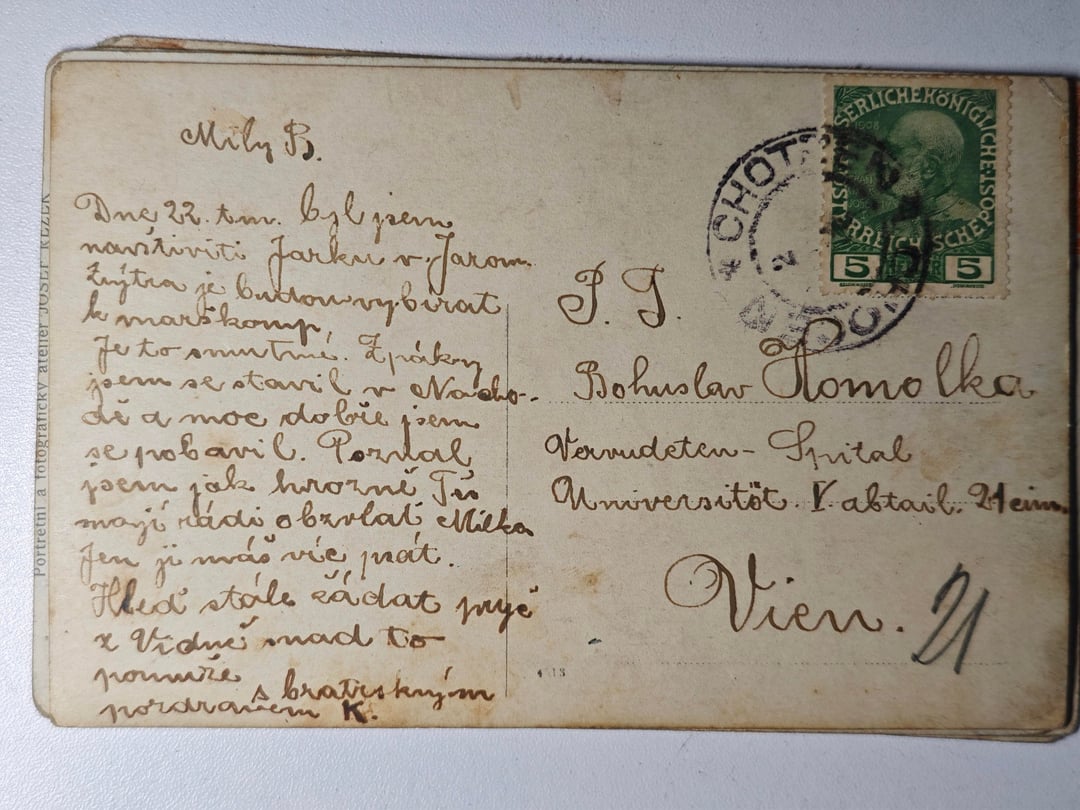 Milý B.
Dne 22. t.m. byl jsem
navštíviti Jarku v Jarom.
Zýtra je budou vybírat
k marškomp.
Je to smutné. Zpátky
jsem se stavil v Nácho-
dě a moc dobře jsem
se pobavil. Poznal
jsem jak hrozně Tě
mají rádi obzvlát Milka
Jen jí máš víc psát.
Hleď stále žádat pryč
z Vídně snad to
pomůže
s bratrským
pozdravem K.
Portretní a fotografický atelier JOSEF REZEK
KAISERLICHE KÖNIGLICHE
ÖSTERREICHISCHE POST
1908
5 5
CHOTZEN
CHOCEŇ
P. T.
Bohuslav Homolka
Vervudeten - Spital
Universität V. abtail. 21 cim.
Vien.
21